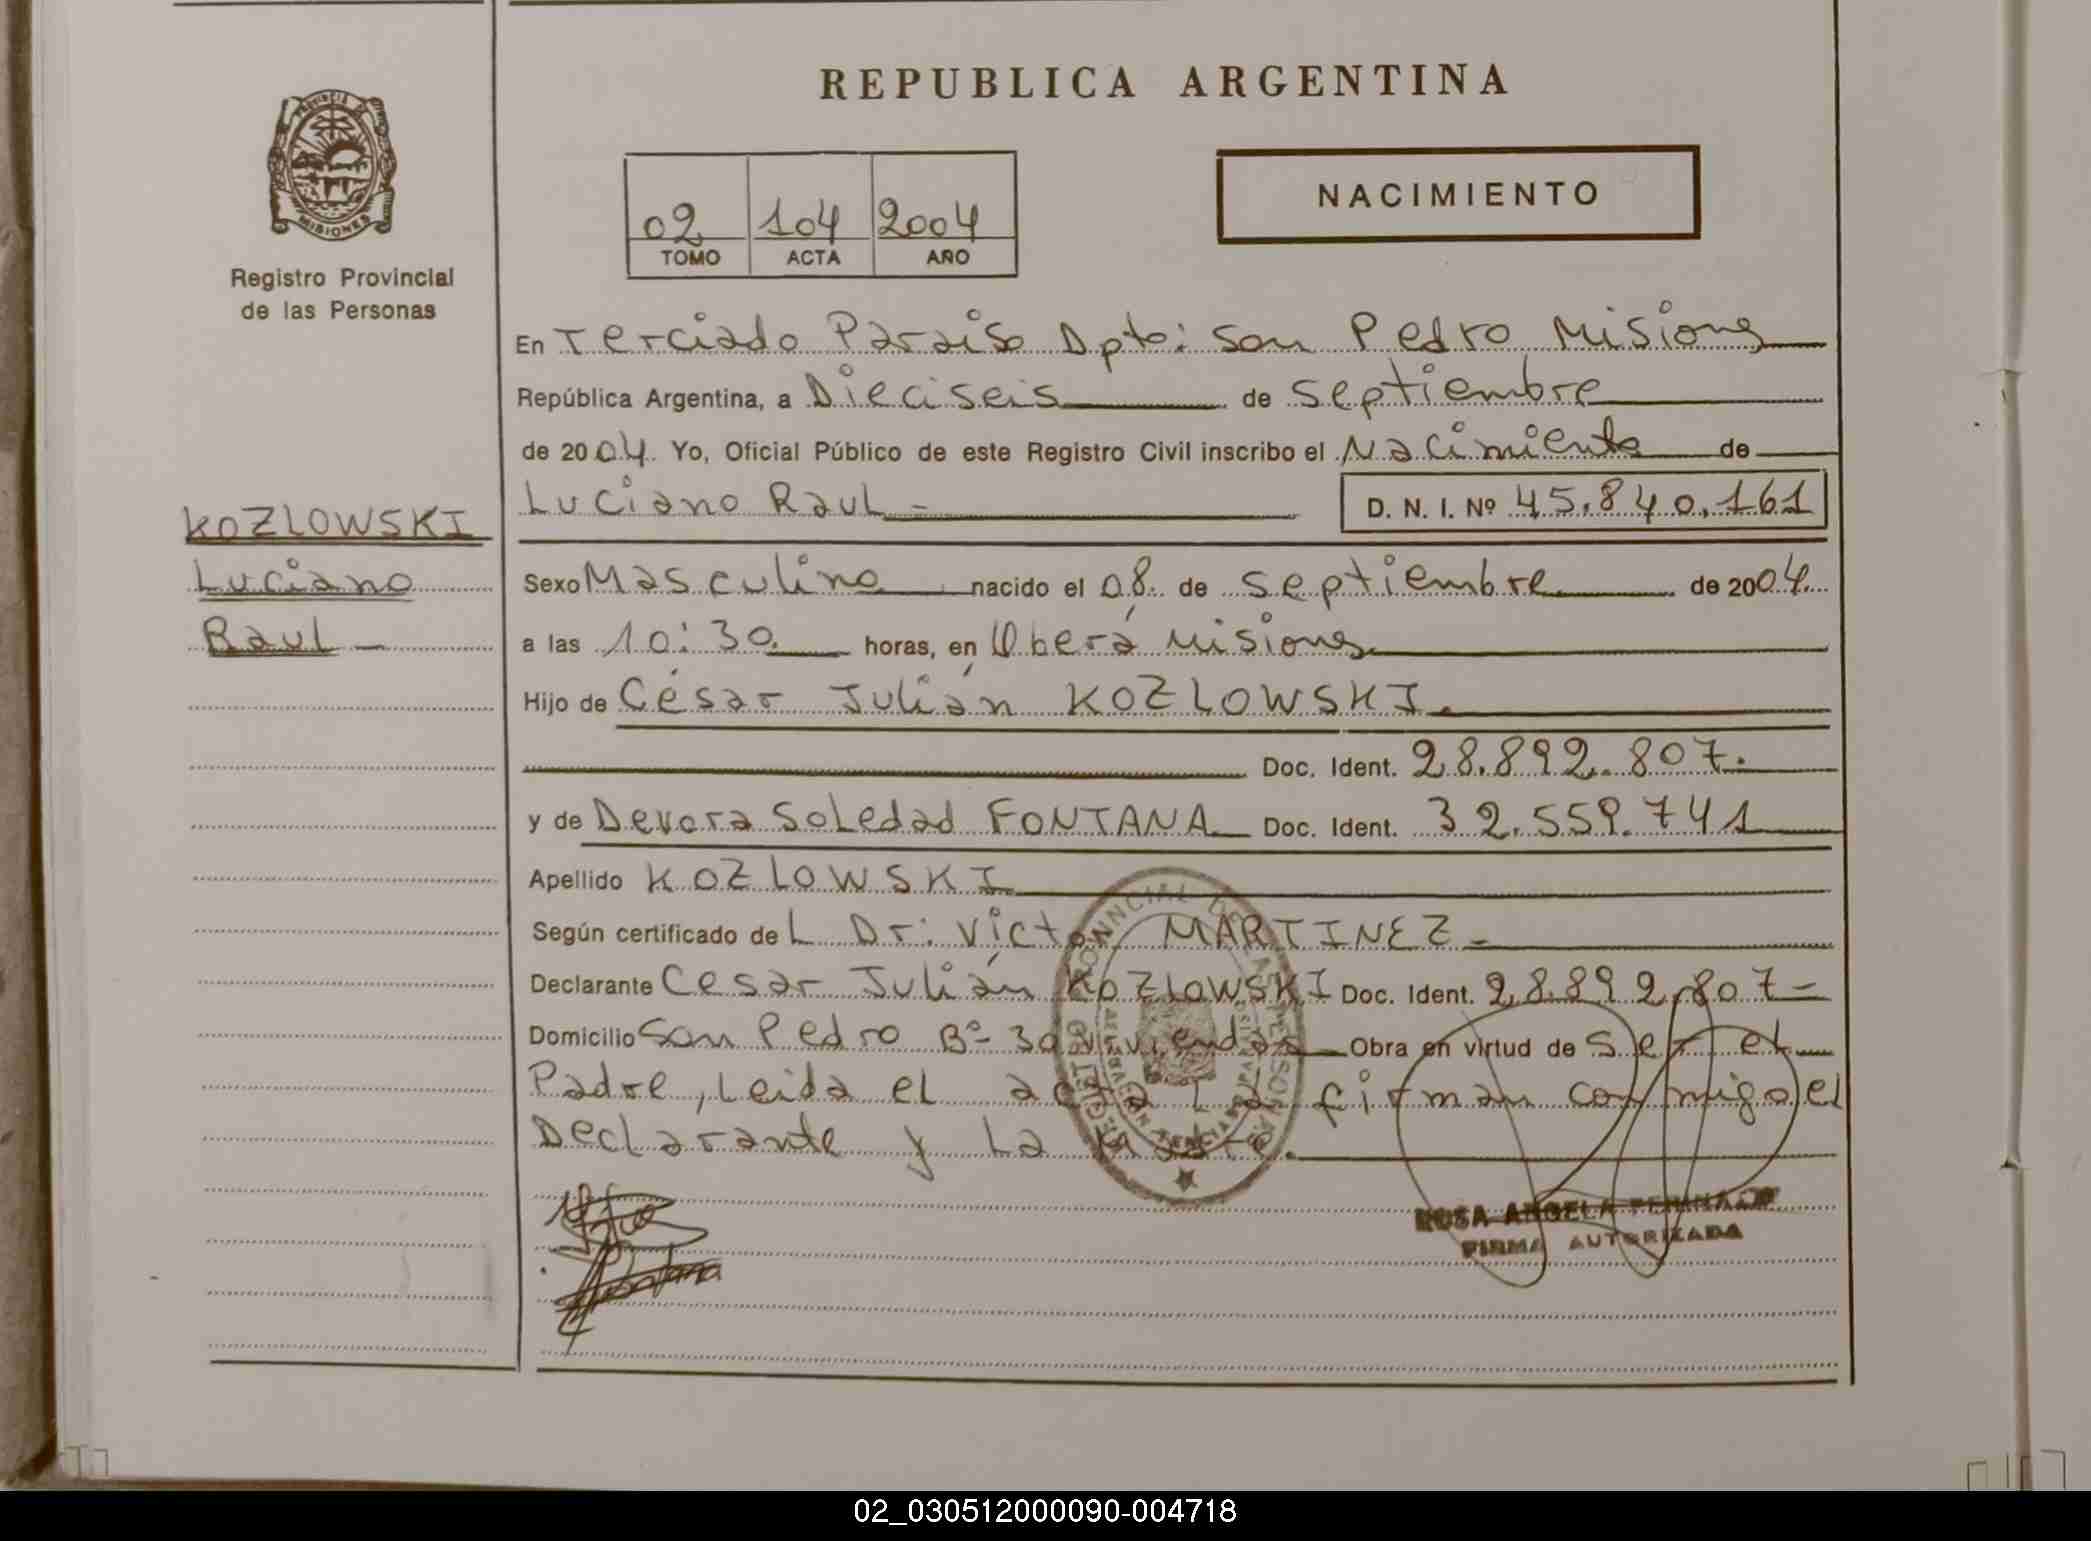 REPUBLICA ARGENTINA
PROVINCIA DE
MISIONES
Registro Provincial
de las Personas
02 104 2004
TOMO ACTA AÑO
NACIMIENTO
En Terciado Paraiso Dpto: San Pedro Misiones
República Argentina, a Dieciseis de Septiembre
de 2004. Yo, Oficial Público de este Registro Civil inscribo el Nacimiento de
Luciano Raul - D. N. I. Nº 45.840.161
KOZLOWSKI
Luciano
Raul -
Sexo Masculino nacido el 08. de Septiembre de 2004.
a las 10:30. horas, en Oberá Misiones
Hijo de César Julián KOZLOWSKI.
Doc. Ident. 28.892.807.
y de Devora Soledad FONTANA Doc. Ident. 32.559.741
Apellido KOZLOWSKI
Según certificado de L Dr: Victor MARTINEZ -
Declarante Cesar Julián KOZLOWSKI Doc. Ident. 28.892.807-
Domicilio San Pedro Bº- 30 viviendas Obra en virtud de Ser el
Padre, Leida el acta La firman conmigo el
Declarante y La Madre.
ROSA ANGELA
FIRMA AUTORIZADA
02_030512000090-004718